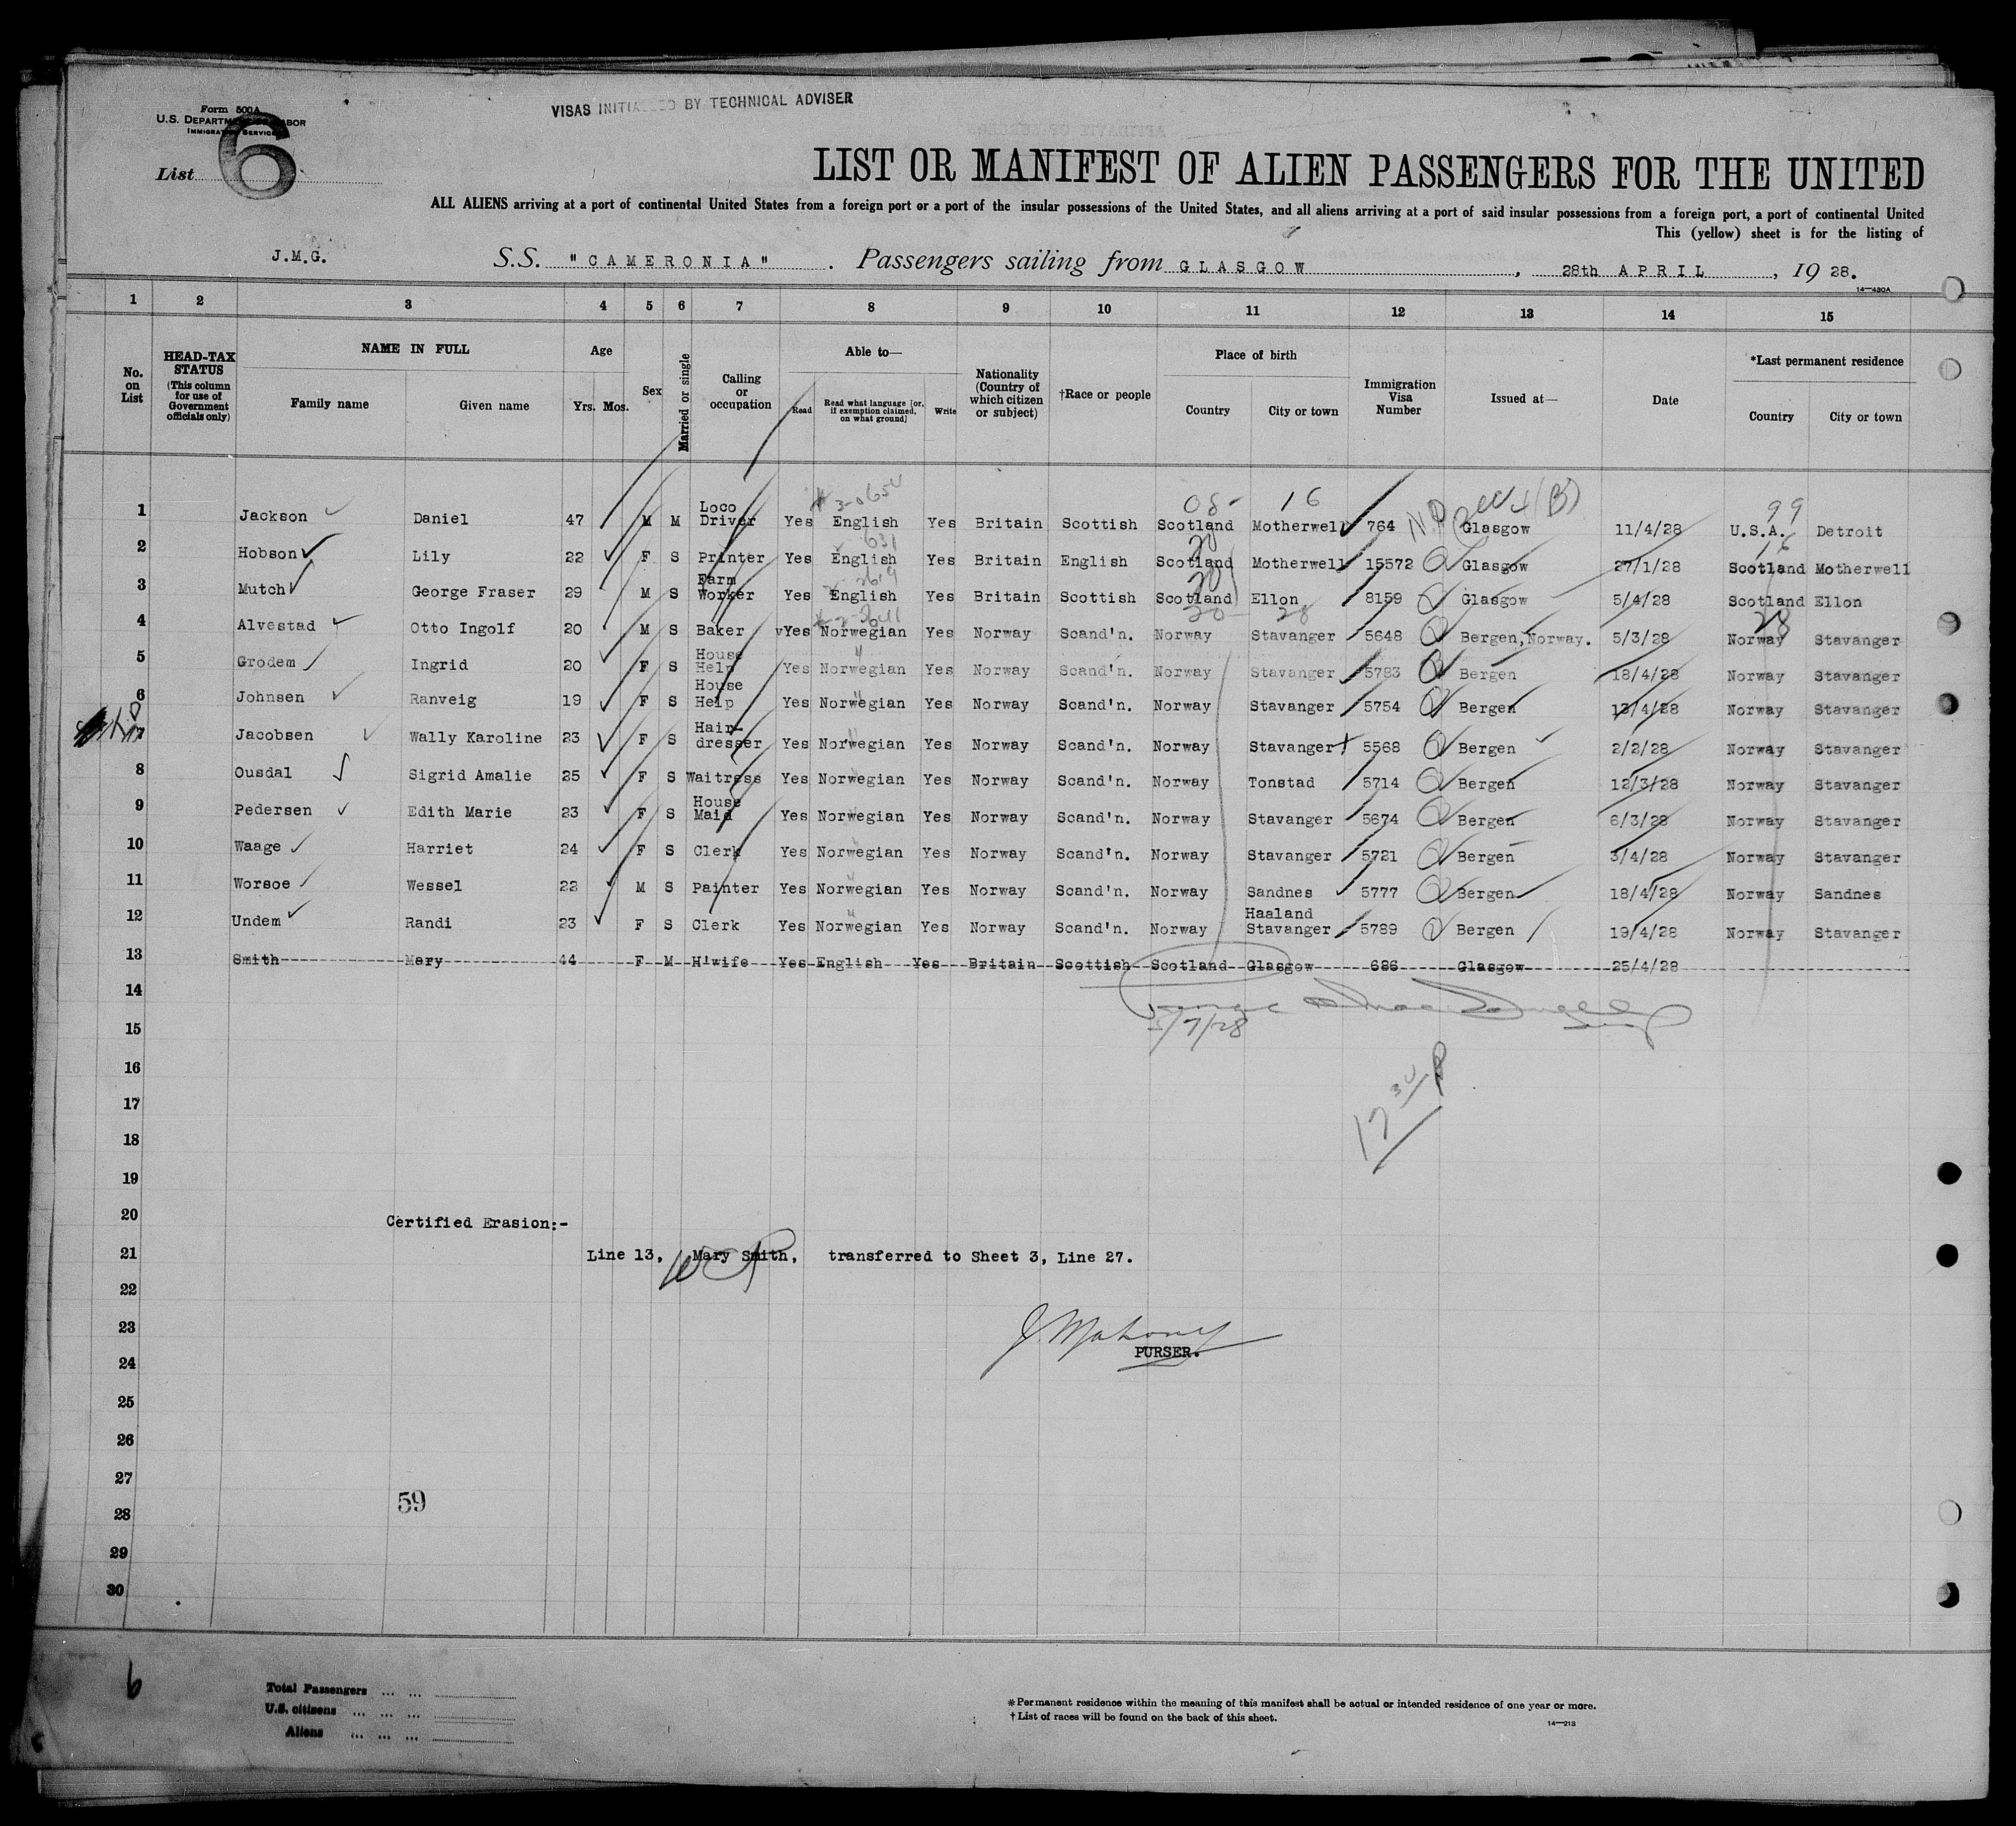 Form 500A
U.S. DEPARTMENT OF LABOR
IMMIGRATION SERVICE
List 6
VISAS INITIALLED BY TECHNICAL ADVISER
LIST OR MANIFEST OF ALIEN PASSENGERS FOR THE UNITED
ALL ALIENS arriving at a port of continental United States from a foreign port or a port of the insular possessions of the United States, and all aliens arriving at a port of said insular possessions from a foreign port, a port of continental United
This (yellow) sheet is for the listing of
J.M.G. S.S. "CAMERONIA" . Passengers sailing from GLASGOW , 28th APRIL , 19 28.
14—430A
1 2 3 4 5 6 7 8 9 10 11 12 13 14 15
No. on List HEAD-TAX STATUS (This column for use of Government officials only) NAME IN FULL Family name Given name Age Yrs. Mos. Sex Married or single Calling or occupation Able to— Read Read what language [or, if exemption claimed, on what ground] Write Nationality (Country of which citizen or subject) †Race or people Place of birth Country City or town Immigration Visa Number Issued at— Date *Last permanent residence Country City or town
08- 16 99
1 Jackson Daniel 47 M M Loco Driver Yes English Yes Britain Scottish Scotland Motherwell 764 Glasgow 11/4/28 U.S.A. Detroit
2 Hobson Lily 22 F S Printer Yes English Yes Britain English Scotland Motherwell 15572 Glasgow 27/1/28 Scotland Motherwell
3 Mutch George Fraser 29 M S Farm Worker Yes English Yes Britain Scottish Scotland Ellon 8159 Glasgow 5/4/28 Scotland Ellon
4 Alvestad Otto Ingolf 20 M S Baker Yes Norwegian Yes Norway Scand'n. Norway Stavanger 5648 Bergen, Norway. 5/3/28 Norway Stavanger
5 Grodem Ingrid 20 F S House Help Yes Norwegian Yes Norway Scand'n. Norway Stavanger 5783 Bergen 18/4/28 Norway Stavanger
6 Johnsen Ranveig 19 F S House Help Yes Norwegian Yes Norway Scand'n. Norway Stavanger 5754 Bergen 13/4/28 Norway Stavanger
7 Jacobsen Wally Karoline 23 F S Hair-dresser Yes Norwegian Yes Norway Scand'n. Norway Stavanger 5568 Bergen 2/2/28 Norway Stavanger
8 Ousdal Sigrid Amalie 25 F S Waitress Yes Norwegian Yes Norway Scand'n. Norway Tonstad 5714 Bergen 12/3/28 Norway Stavanger
9 Pedersen Edith Marie 23 F S House Maid Yes Norwegian Yes Norway Scand'n. Norway Stavanger 5674 Bergen 6/3/28 Norway Stavanger
10 Waage Harriet 24 F S Clerk Yes Norwegian Yes Norway Scand'n. Norway Stavanger 5721 Bergen 3/4/28 Norway Stavanger
11 Worsoe Wessel 22 M S Painter Yes Norwegian Yes Norway Scand'n. Norway Sandnes 5777 Bergen 18/4/28 Norway Sandnes
12 Undem Randi 23 F S Clerk Yes Norwegian Yes Norway Scand'n. Norway Haaland Stavanger 5789 Bergen 19/4/28 Norway Stavanger
13 Smith Mary 44 F M H'wife Yes English Yes Britain Scottish Scotland Glasgow 686 Glasgow 25/4/28
14
15
16
17
18
19
20 Certified Erasion:-
21 Line 13, Mary Smith, transferred to Sheet 3, Line 27.
22
23 J. Mahoney
PURSER.
24
25
26
27
59
28
29
30
6
Total Passengers ... ...
U.S. citizens ... ... ...
Aliens ... ... ...
*Permanent residence within the meaning of this manifest shall be actual or intended residence of one year or more.
†List of races will be found on the back of this sheet.
14—213